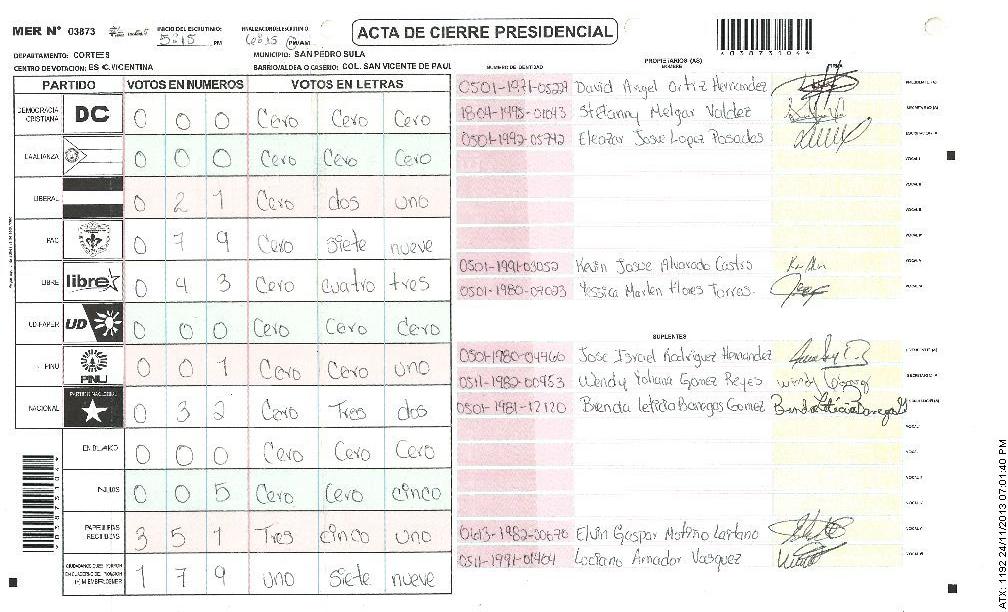 MER N° 03873
INICIO DEL ESCRUTINIO: 5:15 PM
ACTA DE CIERRE PRESIDENCIAL
DEPARTAMENTO: CORTES
MUNICIPIO: SAN PEDRO SULA
CENTRO DE VOTACION: ES -C. VICENTINA
BARRIO/ALDEA O CASERIO: COL. SAN VICENTE DE PAUL
PARTIDO VOTOS EN NUMEROS VOTOS EN LETRAS
DEMOCRACIA CRISTIANA DC 0 0 0 Cero Cero Cero
0 0 0 Cero Cero Cero
LIBERAL 0 2 1 Cero dos uno
PAC 0 7 9 Cero siete nueve
LIBRE libre 0 4 3 Cero cuatro tres
UD-FAPER UD 0 0 0 Cero Cero Cero
PINU 0 0 1 Cero Cero uno
NACIONAL PARTIDO NACIONAL 0 3 2 Cero Tres dos
EN BLANCO 0 0 0 Cero Cero Cero
NULOS 0 0 5 Cero Cero cinco
PAPELETAS RECIBIDAS 3 5 1 Tres cinco uno
1 7 9 uno siete nueve
NUMERO DE IDENTIDAD
PROPIETARIOS (AS)
NOMBRE
0501-1971-05229 David Angel Ortiz Hernandez PRESIDENTE (A)
1804-1995-01043 Stefanny Melgar Valdez SECRETARIO (A)
0501-1992-05742 Eleazar Josue Lopez Posadas
VOCAL I
0501-1991-03052 Kevin Josue Alvarado Castro
0501-1980-09023 Yessica Marlen Flores Torres
SUPLENTES
0501-1980-04460 Jose Israel Rodriguez Hernandez
0511-1982-00953 Wendy Yoliana Gomez Reyes
0501-1981-12120 Brenda Leticia Banegas Gomez
0613-1982-00670 Elvin Gaspar
0511-1991-01404 Luciano Amador Vasquez
*038731044*
ATX: 1192 24/11/2013 07:01:40 PM